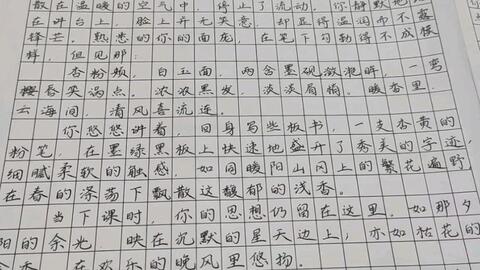 散在温暖的空气中，停止了流动。你静默地
在讲台上，脸上并无笑意，却显得温润而不露
锋芒。熟悉的你的面庞，在笔下勾勒得不成模
样，但见那：
杏粉颊，白玉面，两含墨砚潋滟眸，一弯
樱唇笑涡点。浓浓黑发，淡淡眉梢。暖香里，
云海间，清风喜流连。
你悠悠讲着，回身写些板书，一支杏黄的
粉笔，在墨绿黑板上快速地盛开了秀美的字迹，
细腻柔软的触感，如同暖阳山冈上的繁花遍野，
在春的涤荡下飘散这馥郁的浅香。
当下课时，你的思想仍留在这里。如那夕
阳的余光，映在沉默的星天边上，亦如桂花的
香，在欢乐的晚风里悠扬。